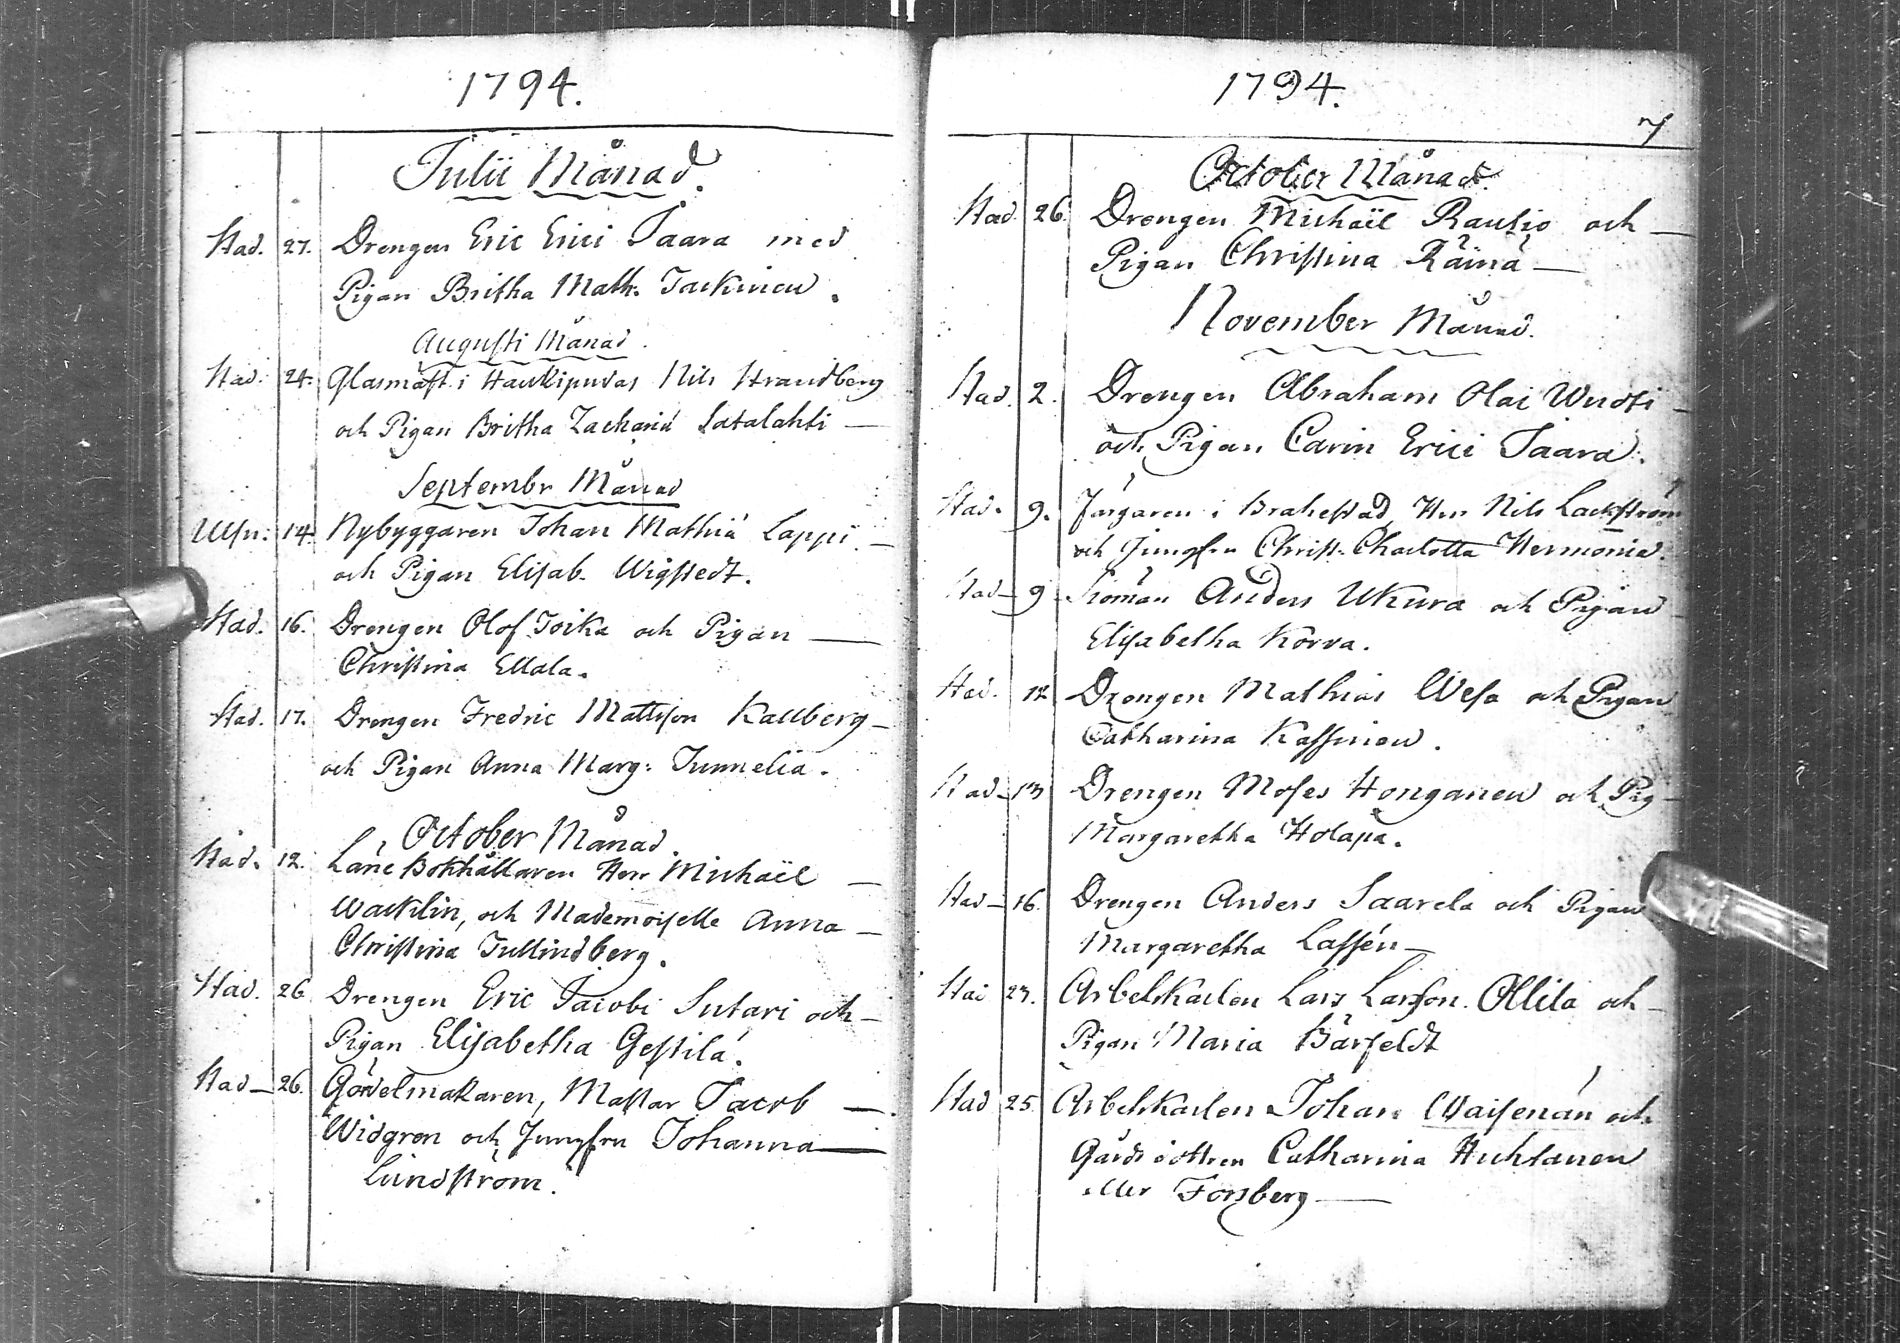 1794.
Julii Månad.
Stad. 27. Drengen Eric Erici Saara med
Pigan Britha Math. Jackinen.
Augusti Månad.
Stad. 24. Glasmäst. i Haukipudas Nils Strandberg
och Pigan Britha Zachariä Satalahti —
Septembr Månad
14. Nybyggaren Johan Mathiä Lappi —
och Pigan Elisab. Wigstedt.
Stad. 16. Drengen Olof Toika och Pigan —
Christina Ellala.
Stad. 17. Drengen Fredric Mattsson Kallberg —
och Pigan Anna Marg: Junnelia.
October Månad.
Stad. 12. Bokhållaren Herr Michaël —
Wacklin, och Mademoiselle Anna —
Christina Jullindberg.
Stad. 26 Drengen Eric Jacobi Sutari och —
Pigan Elisabetha Gestilä.
Stad — 26. Gördelmakaren, Mästar Jacob —
Widgren och Jungfru Johanna —
Lundström.
1794.
7
October Månad.
Stad. 26. Drengen Michaël Rautio och —
Pigan Christina Räinä —
November Månad.
Stad. 2. Drengen Abraham Olai Wuoti —
och Pigan Carin Erici Saara.
Stad. 9. Färgaren i Brahestad Herr Nils Lackström
och Jungfru Christ. Charlotta Hermonia.
Stad — 9 Sjöman Anders Ukura och Pigan
Elisabetha Korva.
Stad. 12 Drengen Mathias Wesa och Pigan
Catharina Kassinen.
Stad — 13 Drengen Moses Honganen och Pig —
Margaretha Holapa.
Stad — 16. Drengen Anders Saarela och Pigan
Margaretha Lassén —
Stad 23. Arbetskarlen Lars Larsson Ollila och —
Pigan Maria Bärfeldt
Stad 25 Arbetskarlen Johan Waisenän och
Gårdsdottren Catharina Huhtanen
eller Forsberg —